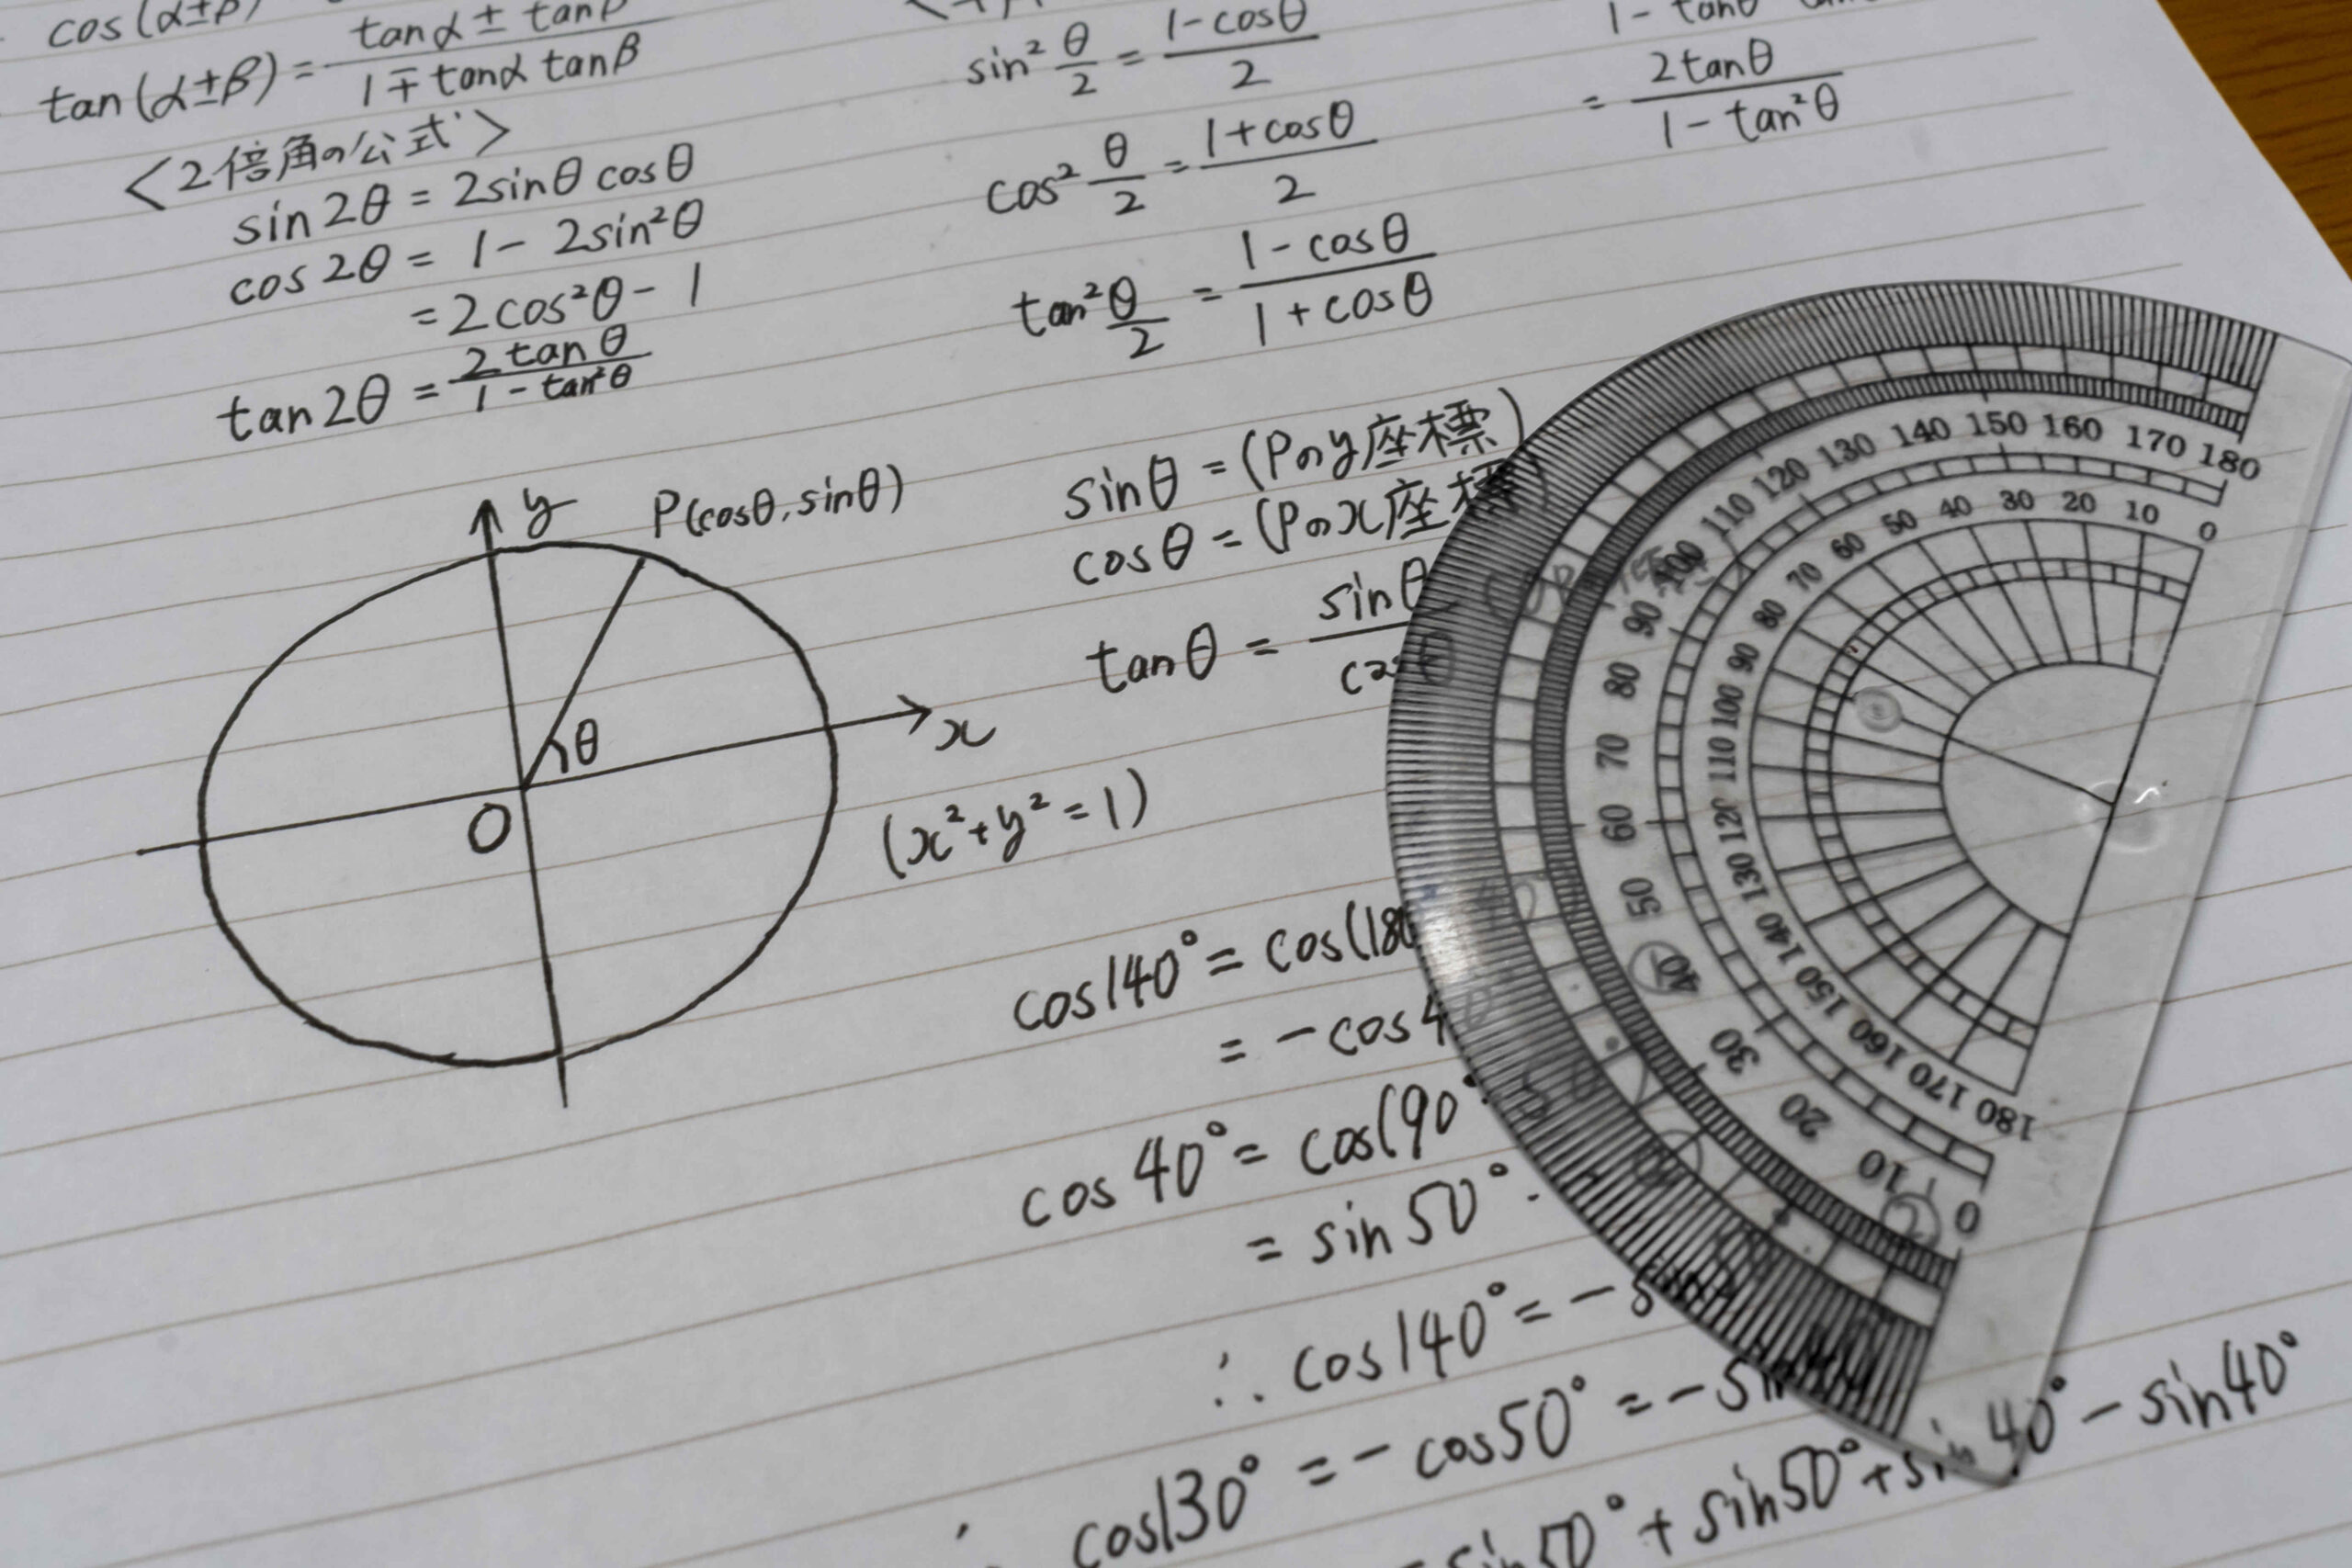 cos(α±β)
tan(α±β) = (tanα ± tanβ)/(1 ∓ tanα tanβ)
<2倍角の公式>
sin2θ = 2sinθ cosθ
cos2θ = 1 - 2sin²θ
= 2cos²θ - 1
tan2θ = (2tanθ)/(1 - tan²θ)
sin² θ/2 = (1-cosθ)/2
cos² θ/2 = (1+cosθ)/2
tan² θ/2 = (1-cosθ)/(1+cosθ)
1 - tanθ
= (2tanθ)/(1 - tan²θ)
y
P(cosθ, sinθ)
θ
x
O
(x²+y²=1)
sinθ = (Pのy座標)
cosθ = (Pのx座標)
tanθ = sinθ/cosθ
cos140° = cos(180
= -cos4
cos40° = cos(90°
= sin50°
∴ cos140° = -s
cos130° = -cos50° = -sin
sin50° + sin50° + sin40° - sin40°
180 170 160 150 140 130 120 110 100 90 80 70 60 50 40 30 20 10 0
0 10 20 30 40 50 60 70 80 90 100 110 120 130 140 150 160 170 180